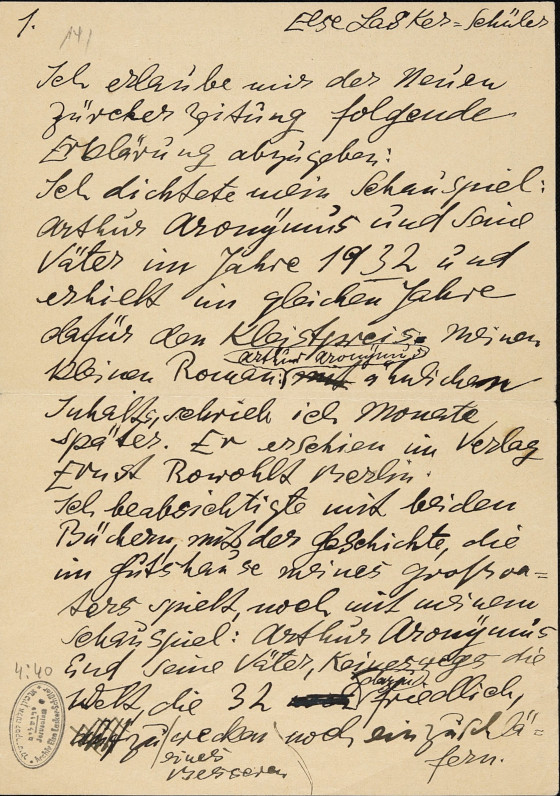 1.
141
Else Lasker=Schüler
Ich erlaube mir der Neuen
Zürcher Zeitung folgende
Erklärung abzugeben:
Ich dichtete mein Schauspiel:
Arthur Aronÿmus und seine
Väter im Jahre 1932 und
erhielt im gleichen Jahre
dafür den Kleistpreis. Meinen
Arthur Aronÿmus
kleinen Roman: ähnlichen
Inhalts, schrieb ich Monate
später. Er erschien im Verlag
Ernst Rowohlt Berlin.
Ich beabsichtigte mit beiden
Büchern, mit der Geschichte, die
im Gutshause meines Großva=
ters spielt, noch mit meinem
Schauspiel: Arthur Aronÿmus
und seine Väter, keineswegs die
Welt, die 32 friedlich,
zu wecken noch einzuschlä=
eines
Besseren
fern.
4:40